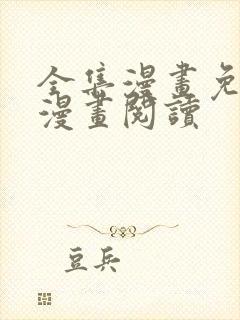 全集漫畫免
漫畫閱讀
豆兵